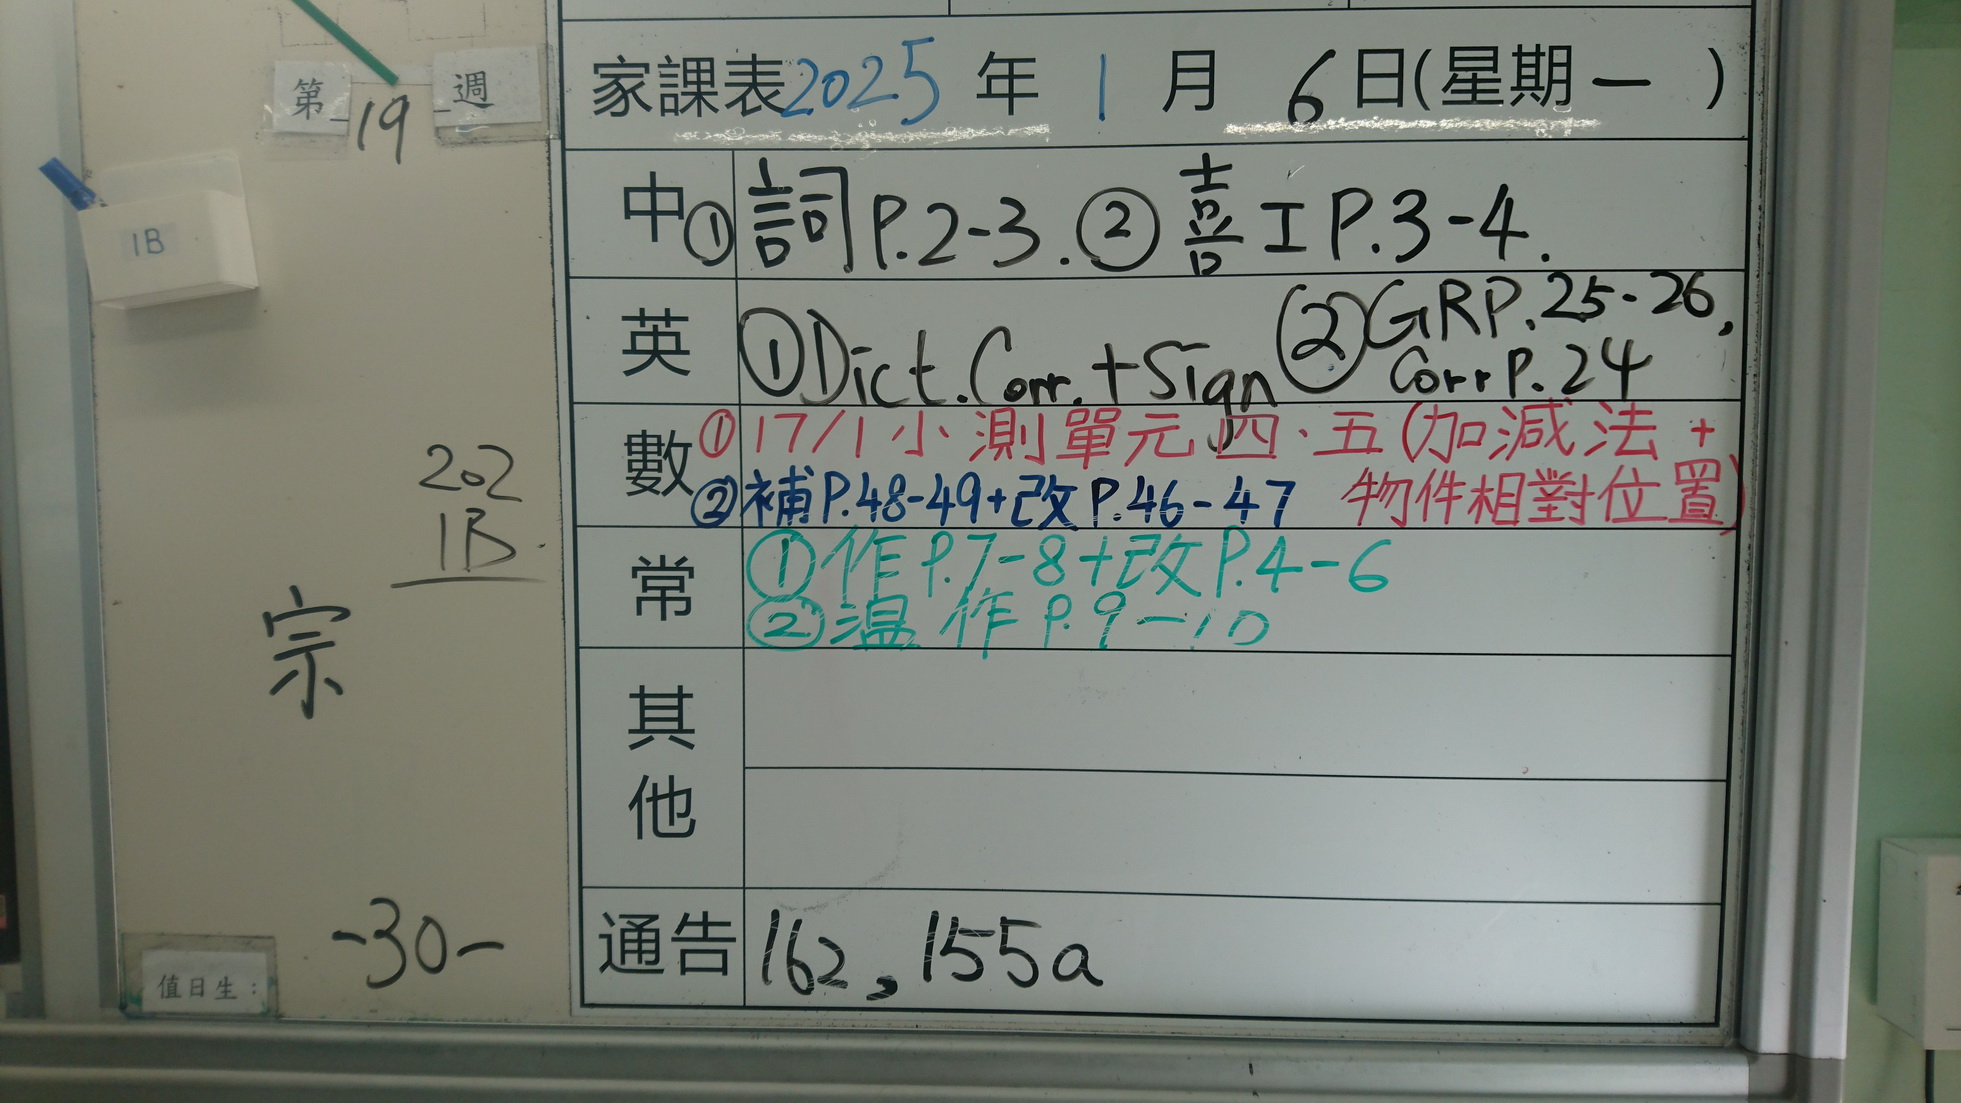 第 19 週
1B
202
1B
宗
-30-
值日生：
家課表2025年1月6日(星期一)
中 ①詞P.2-3.②喜工P.3-4.
英 ①Dict.Corr.+Sign ②GRP.25-26,
CorrP.24
數 ①17/1小測單元四.五(加減法+
物件相對位置)
②補P.48-49+改P.46-47
常 ①作P.7-8+改P.4-6
②溫作P.9-10
其他
通告 162,155a